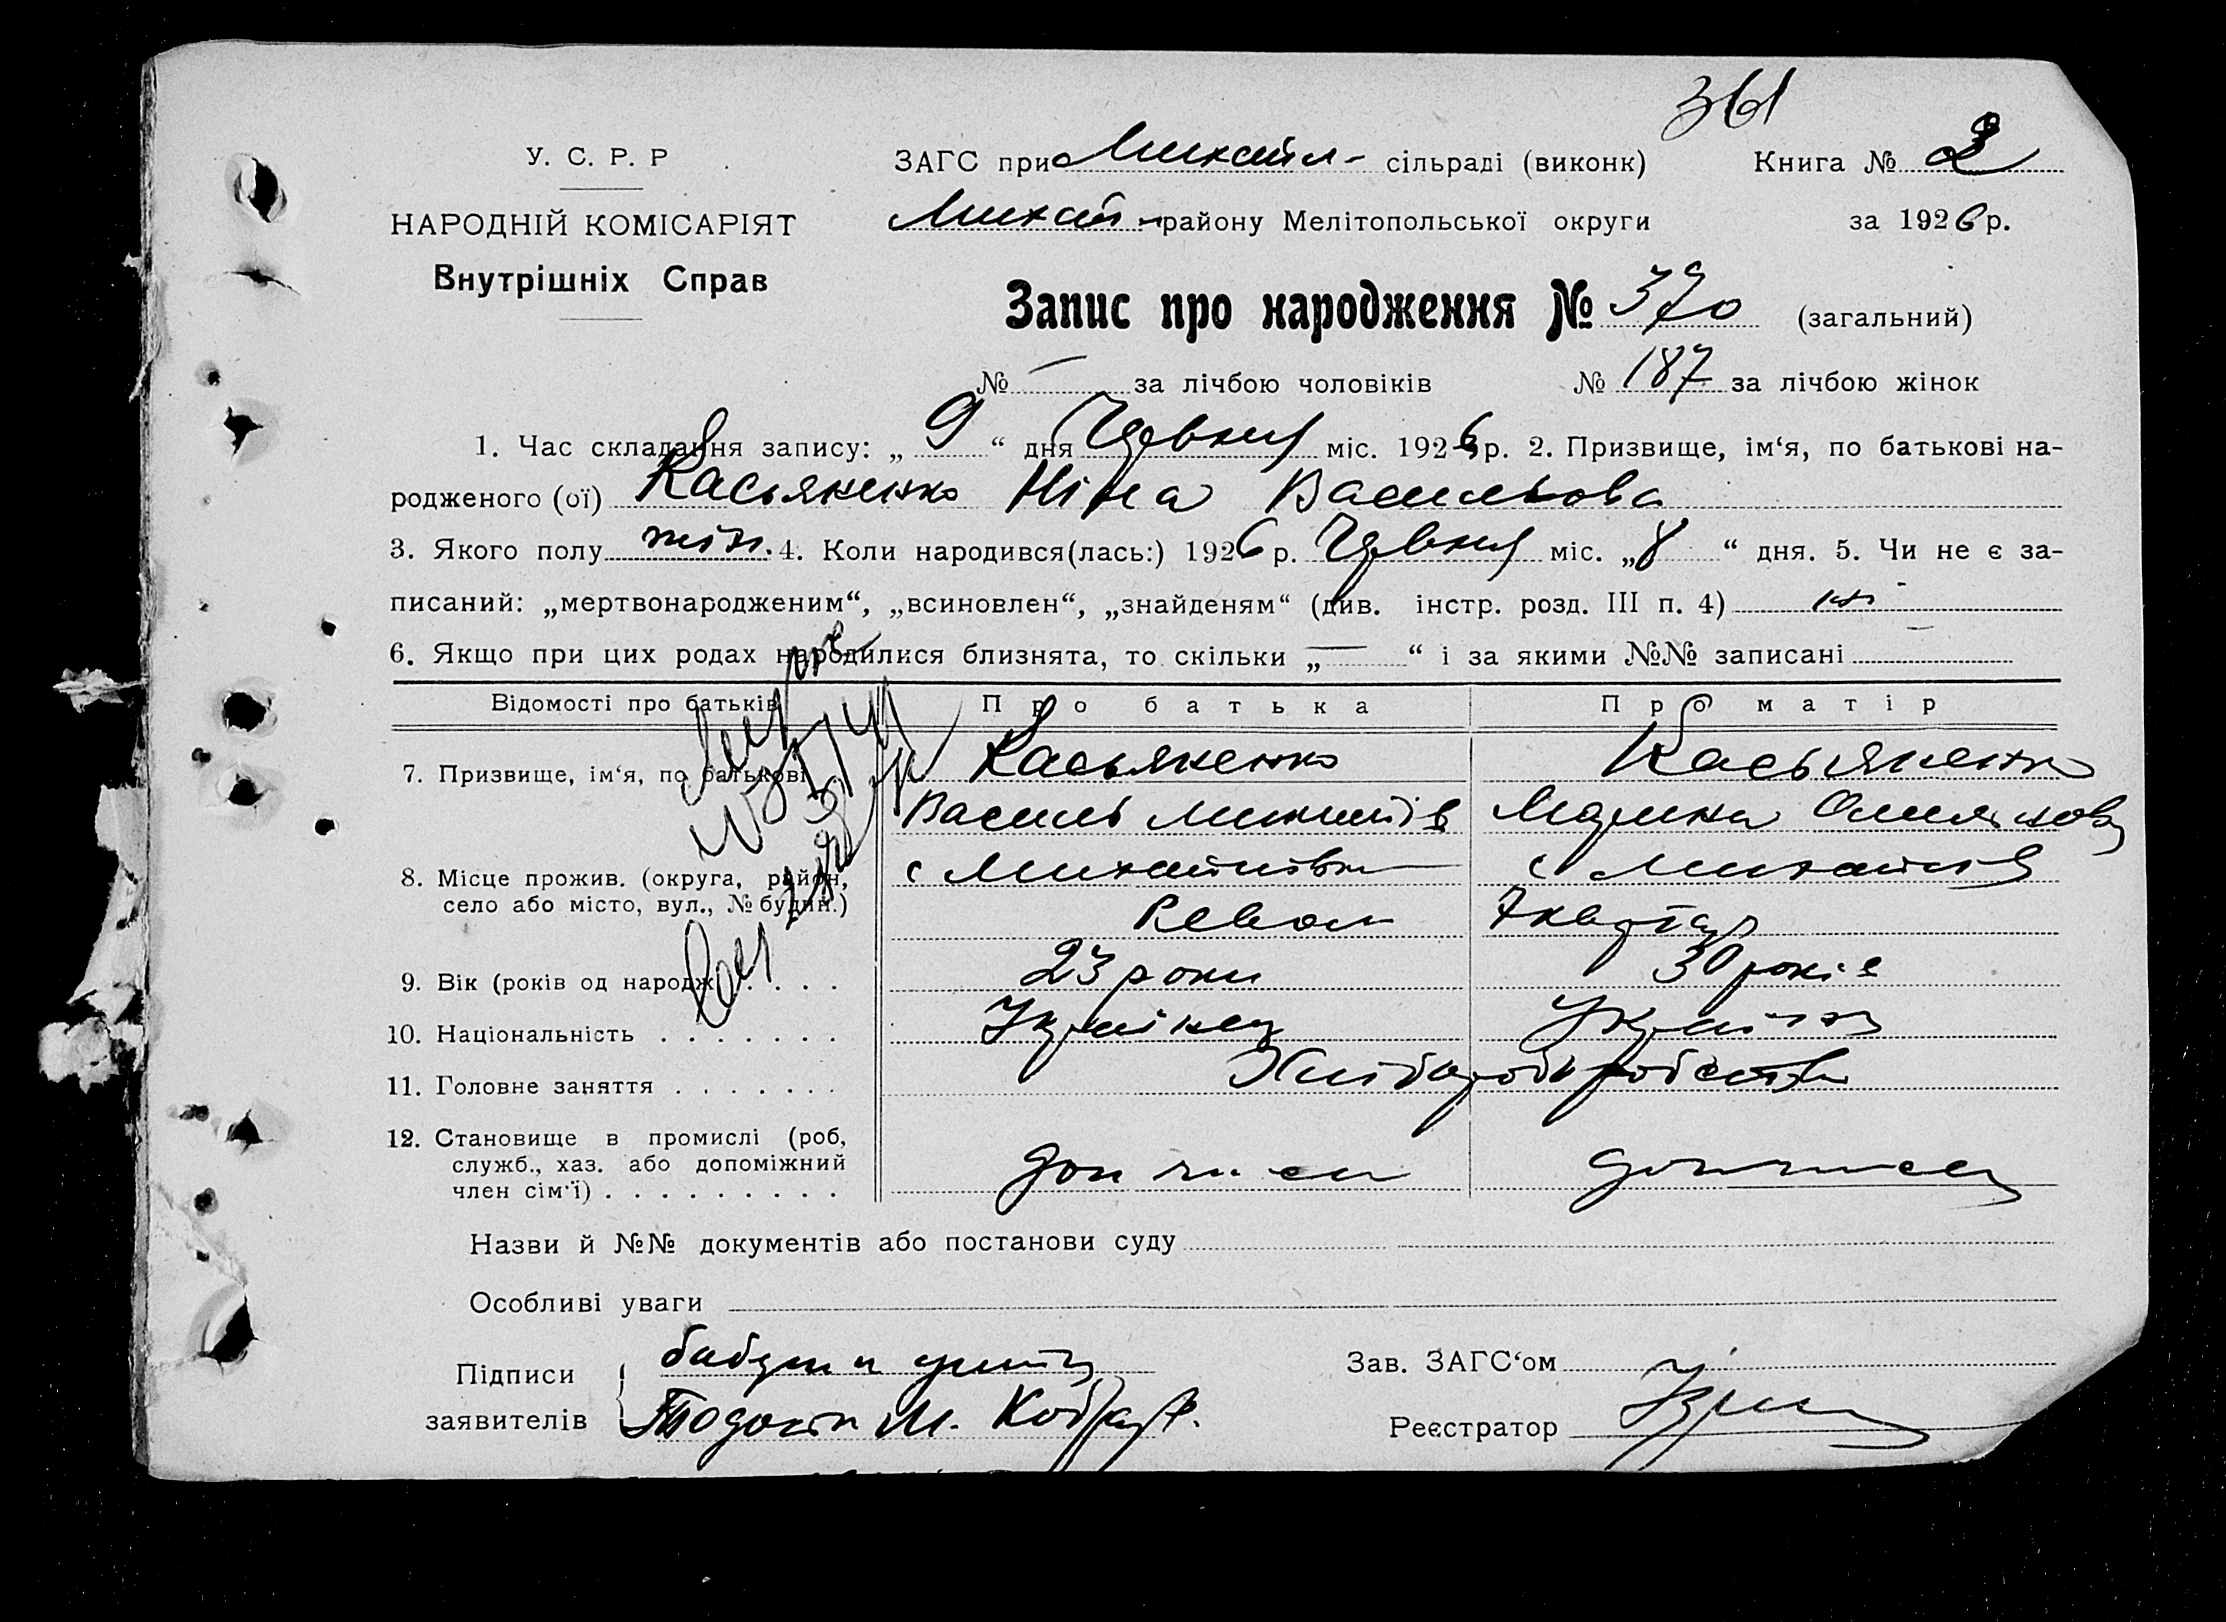 361
У. С. Р. Р
ЗАГС при Михайл- сільраді (виконк) Книга №
НАРОДНІЙ КОМІСАРІЯТ
Михай- району Мелітопольської округи за 1926 р.
Внутрішніх Справ
Запис про народження № 370 (загальний)
№ — за лічбою чоловіків № 187 за лічбою жінок
1. Час складання запису: „ 9 “ дня Червня міс. 1926 р. 2. Призвище, ім‘я, по батькові на-
родженого (ої) Касьяненко Ніна Васильова
3. Якого полу жін. 4. Коли народився(лась:) 1926 р. Червня міс. „ 8 “ дня. 5. Чи не є за-
писаний: „мертвонародженим“, „всиновлен“, „знайденям“ (див. інстр. розд. III п. 4) ні
6. Якщо при цих родах народилися близнята, то скільки „ — “ і за якими №№ записані —
Відомості про батьків Про батька Про матір
7. Призвище, ім‘я, по батькові Касьяненко Касьяненко
Василь Микитів
8. Місце прожив. (округа, район, село або місто, вул., № будин.) с Михайлівка с Михайлів
Револ 7 квартал
9. Вік (років од народж. . . . . 23 роки 30 років
10. Національність . . . . . . . Українец Україн
11. Головне заняття . . . . . . . Хліборобство
12. Становище в промислі (роб,
служб., хаз. або допоміжний
член сім‘ї) . . . . . . . . . доп член доп член
Назви й №№ документів або постанови суду
Особливі уваги
Підписи Зав. ЗАГС‘ом
заявителів М. Реєстратор